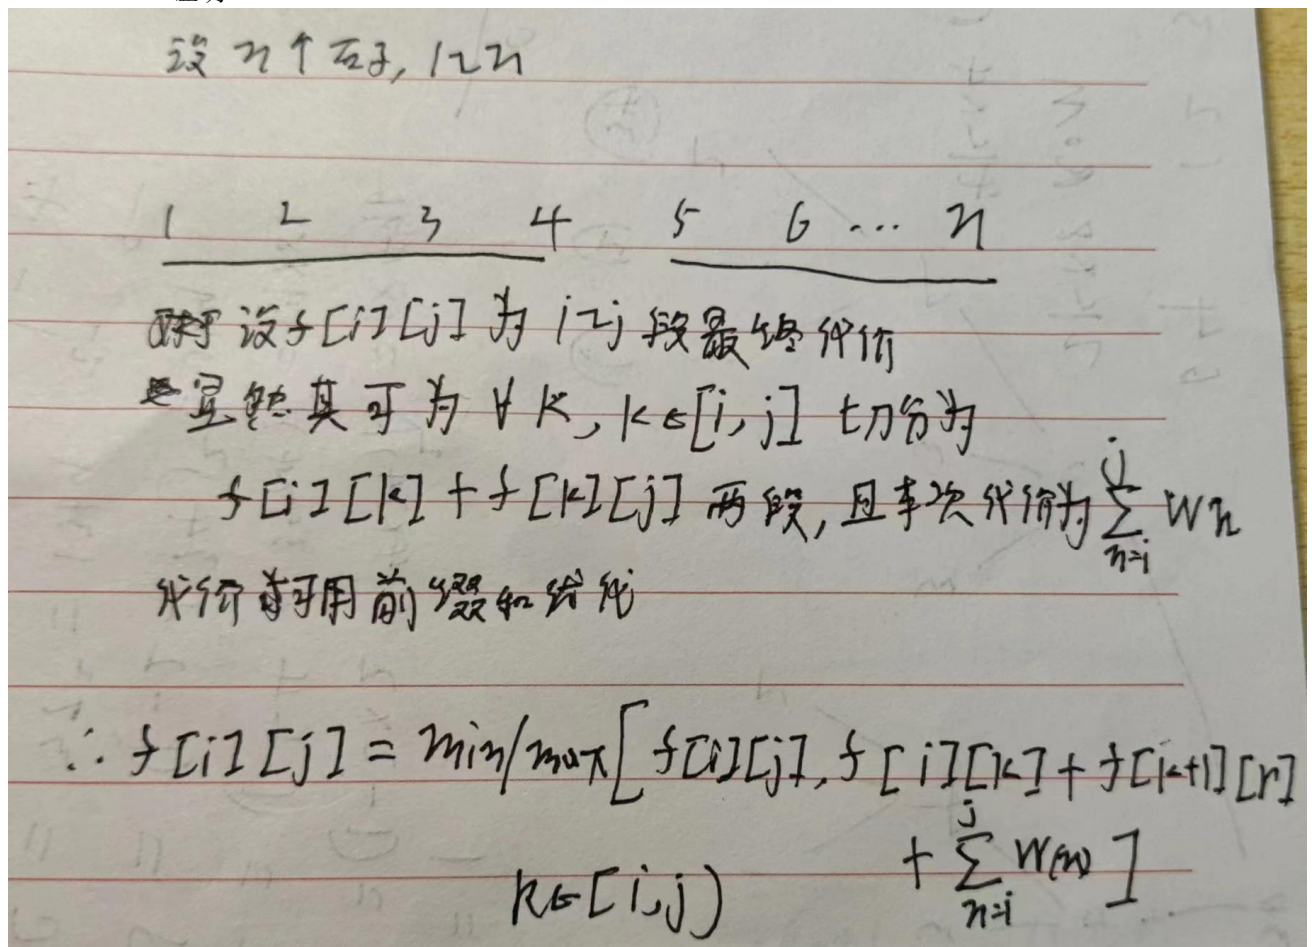 设n个石子, 1~n
1 2 3 4 5 6 ... n
设f[i][j]为i~j段最终代价
显然其可为∀k, k∈[i,j] 切分为
f[i][k]+f[k][j]两段,且本次代价为∑_{n=i}^{j} Wn
代价可用前缀和优化
∴ f[i][j] = min/max[f[i][j], f[i][k]+f[k+1][r]
k∈[i,j) + ∑_{n=i}^{j} W(n)]